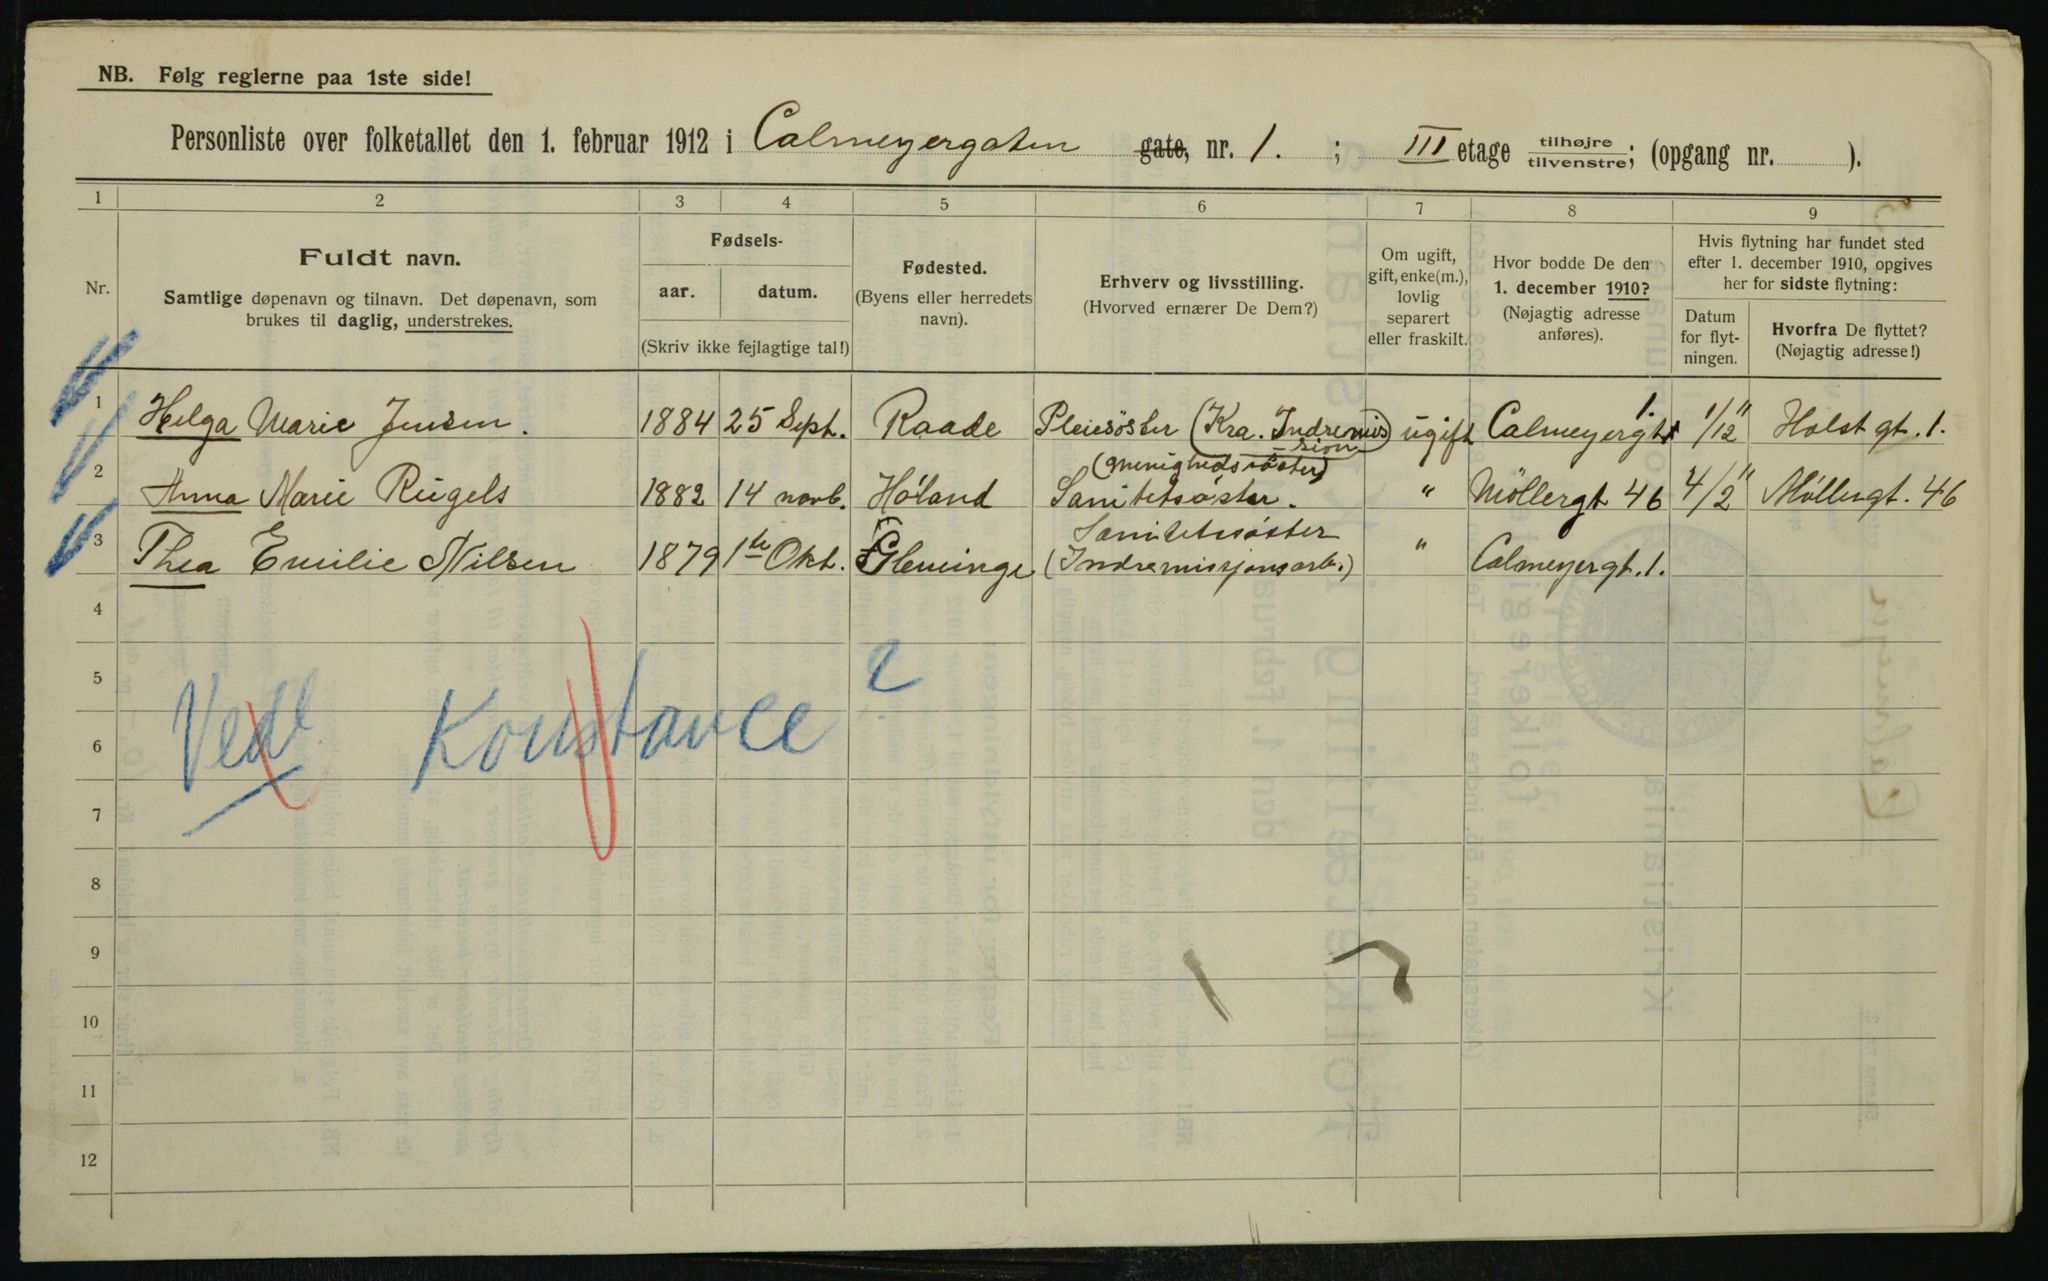 NB. Følg reglerne paa 1ste side!
Personliste over folketallet den 1. februar 1912 i Calmeyergaten gate, nr. 1. ; III etage tilhøjre tilvenstre; (opgang nr. ).
1 2 3 4 5 6 7 8 9
Nr.
Fuldt navn.
Samtlige døpenavn og tilnavn. Det døpenavn, som
brukes til daglig, understrekes.
Fødsels-
aar. datum.
(Skriv ikke fejlagtige tal!)
Fødested.
(Byens eller herredets
navn).
Erhverv og livsstilling.
(Hvorved ernærer De Dem?)
Om ugift,
gift, enke(m.),
lovlig
separert
eller fraskilt.
Hvor bodde De den
1. december 1910?
(Nøjagtig adresse
anføres).
Hvis flytning har fundet sted
efter 1. december 1910, opgives
her for sidste flytning:
Datum
for flyt-
ningen.
Hvorfra De flyttet?
(Nøjagtig adresse!)
1 Helga Marie Jensen. 1884 25 Sept. Raade Pleiesöster (Kra. Indremis-sion) ugift Calmeyergt 1. 1/12 11 Holst gt. 1.
(Menighedssöster)
2 Anna Marie Riigels 1882 14 novb. Höland Sanitetsöster. " Möllergt 46 4/2 11 Möllergt. 46
Sanitetssöster
3 Thea Emilie Nilsen 1879 1ste Okt. Glemminge (Indremissjonsarb.) " Calmeyergt. 1.
4
5
6
Vedl Konstance 2
7
8
9
10
11
12